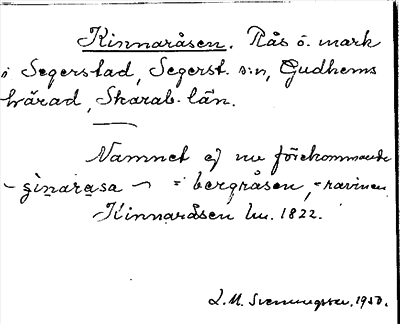 Kinnaråsen. Ås ö. mark
i Segerstad, Segerst. s:n, Gudhems
härad, Skarab. län.
Namnet ej nu förekommande
= bergåsen, = ravinen
Kinnaråsen hm. 1822.
L. M. Svenungsson. 1950.